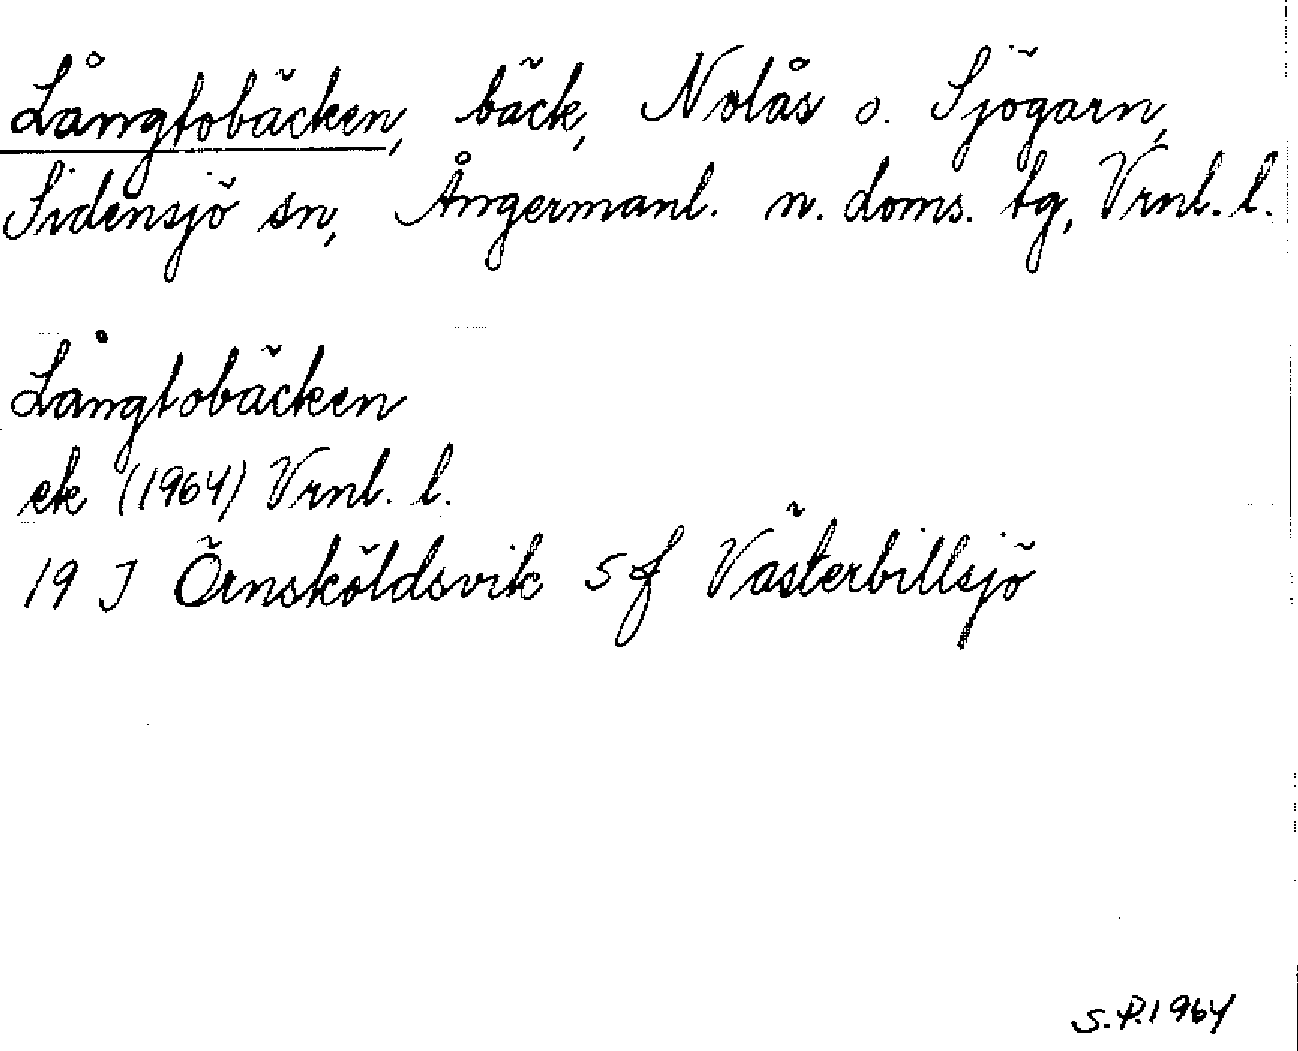 Långtobäcken, bäck, Nolås o. Sjögarn,
Sidensjö sn, Ångermanl. n. doms. tg, Vrnl. l.
Långtobäcken
ek (1964) Vrnl. l.
19 J Örnsköldsvik 5 f Västerbillsjö
S.P.1964